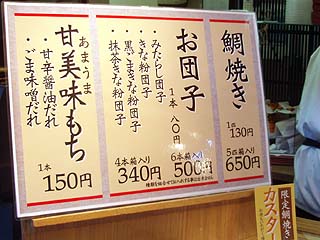 鯛焼き
1匹
130円
5匹箱入り
650円
お団子
1本 八〇円
・みたらし団子
・きな粉団子
・黒ごまきな粉団子
・抹茶きな粉団子
6本箱入り
500円
4本箱入り
340円
あまうま
甘美味もち
・甘辛醤油だれ
・ごま味噌だれ
1本
150円
限定鯛焼き
カスター